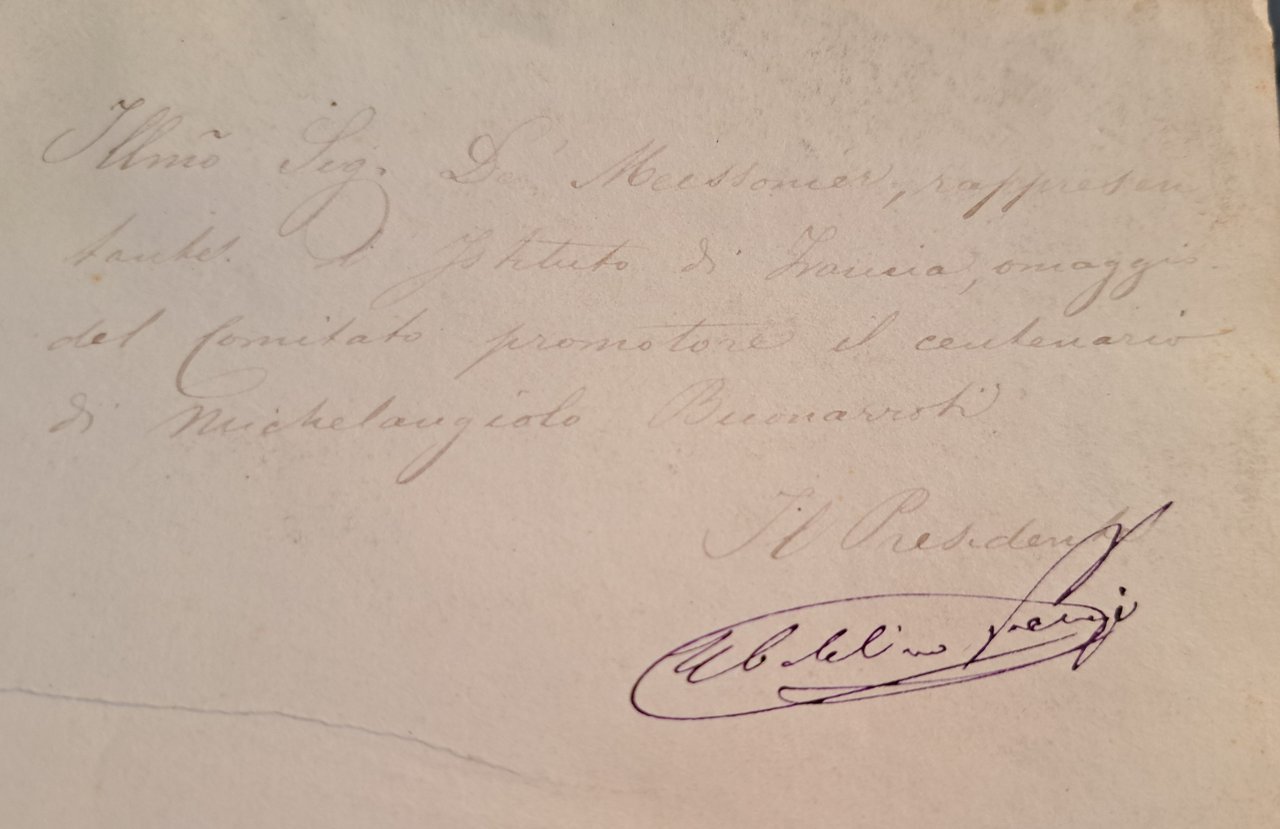 Illmõ Sig. De Meissonier, rappresen
tante d'Istituto di Francia, omaggio
del Comitato promotore il centenario
di Michelangiolo Buonarroti
Il Presidente
Ubaldino Peruzzi